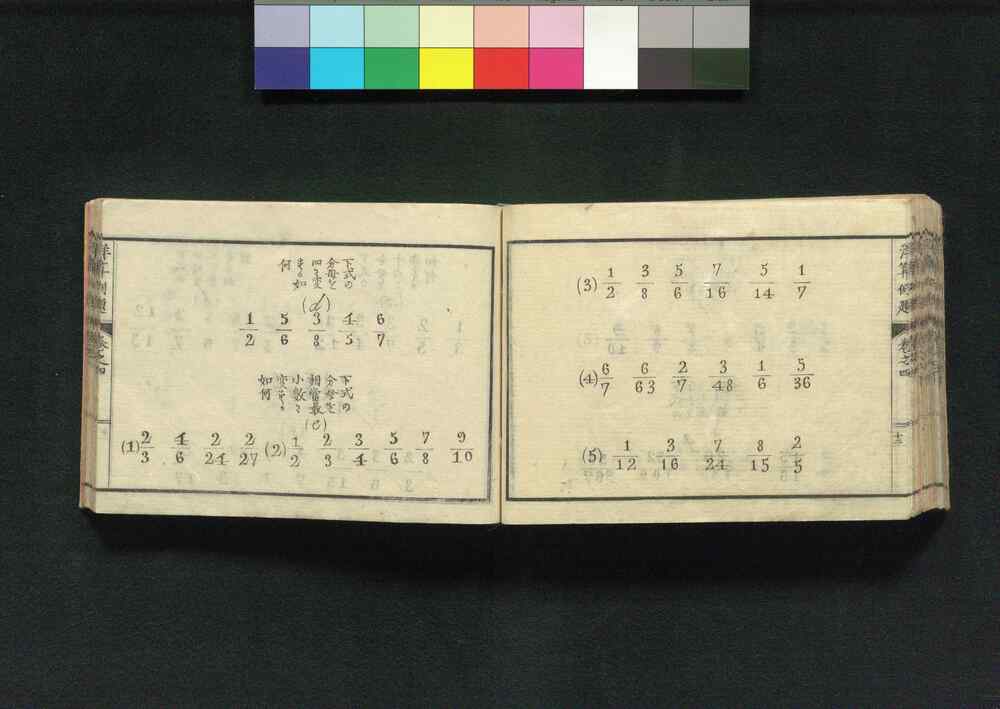 下式の
分母を
四に変
何
(d)
1/2 5/6 3/8 4/5 6/7
下式の
分母を
相當最
小數に
変ぜば
如何
(e)
(1) 2/3 4/6 2/24 2/27 (2) 1/2 2/3 3/4 5/6 7/8 9/10
(3) 1/2 3/8 5/6 7/16 5/14 1/7
(4) 6/7 6/63 2/7 3/48 1/6 5/36
(5) 1/12 3/16 7/24 8/15 2/5
卷之四
卷之四